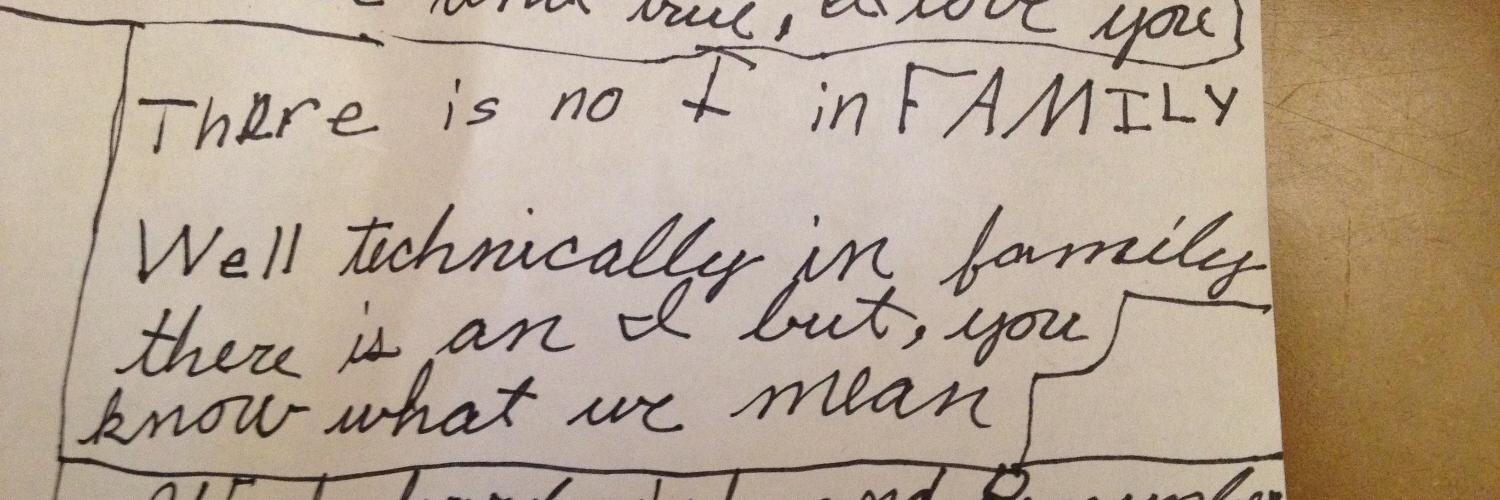 true, I love you
There is no I in FAMILY
Well technically in family
there is an I but, you
know what we mean